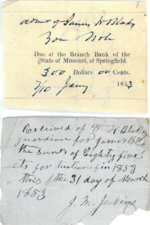 admr of James W Blakey
$300 Note
Due at the Branch Bank of the
State of Missouri, at Springfield
300 Dollars 00 Cents.
Jany 1853
Received of
Guardian for James Blakey
the sum of Eighty five
cts for tuition in 1853
this the 31 day of March
1853
J. M. Jenkins